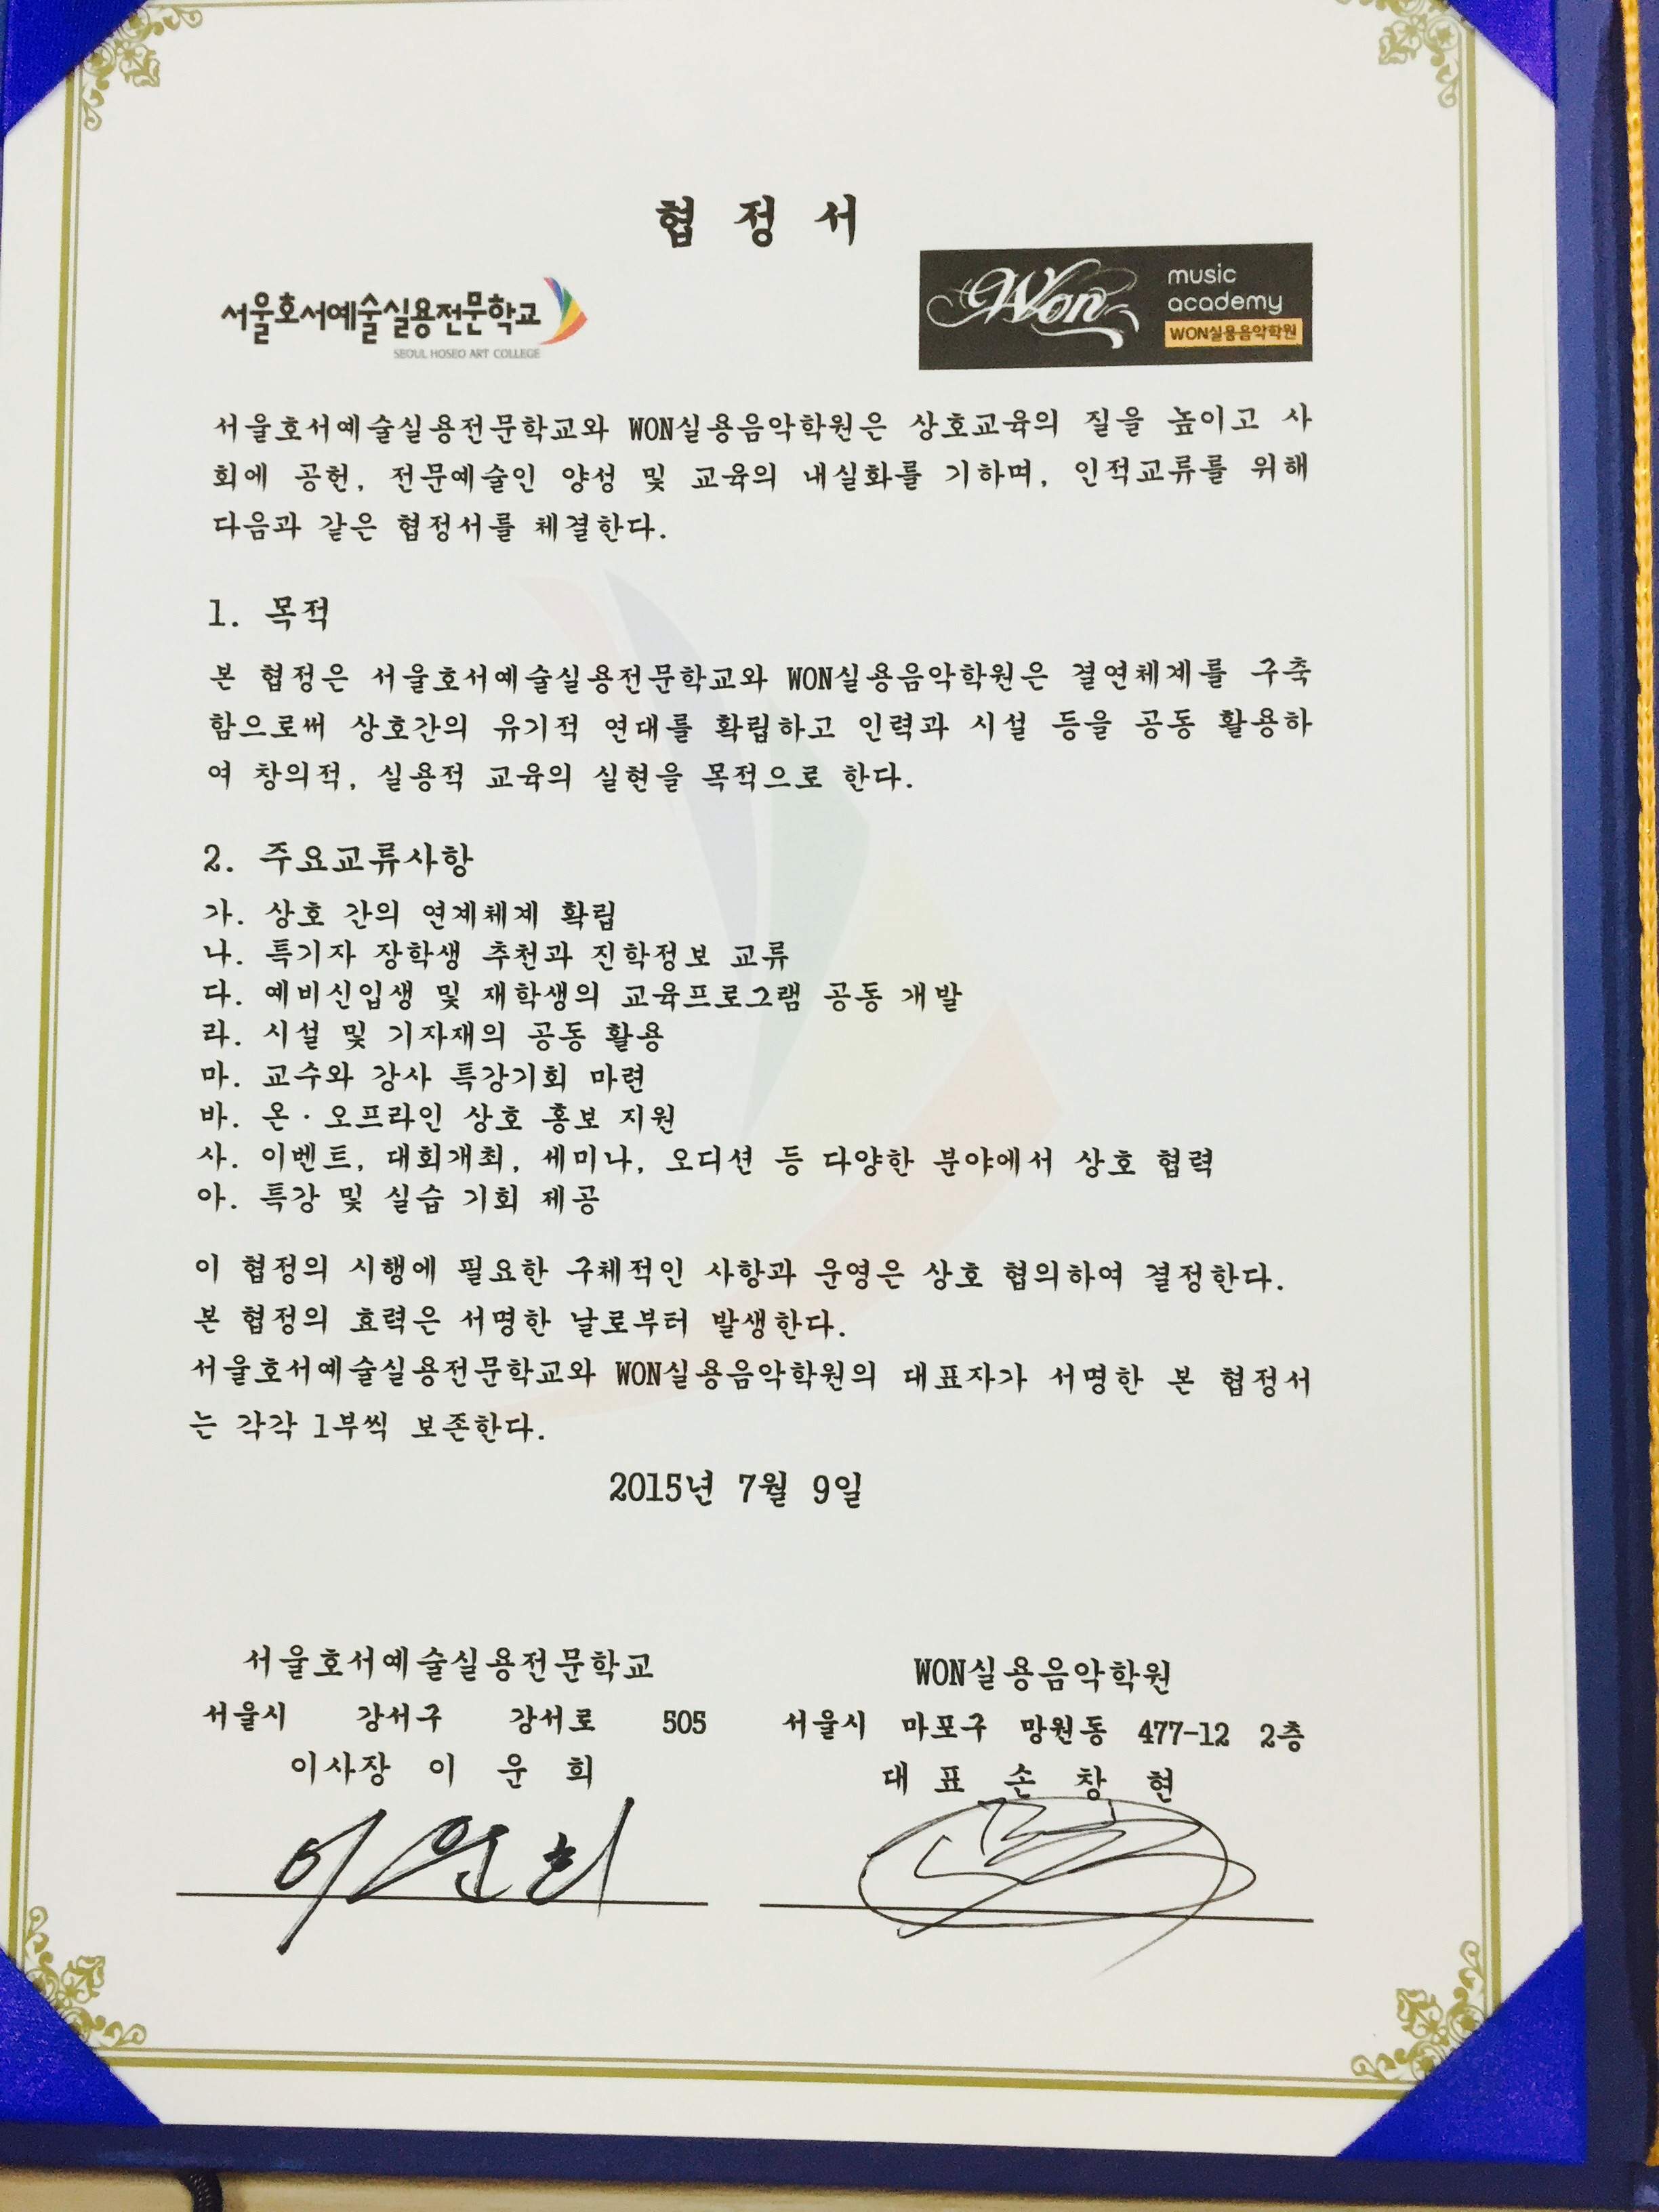 협 정 서
서울호서예술실용전문학교
SEOUL HOSEO ART COLLEGE
Won
music
academy
WON실용음악학원
서울호서예술실용전문학교와 WON실용음악학원은 상호교육의 질을 높이고 사
회에 공헌, 전문예술인 양성 및 교육의 내실화를 기하며, 인적교류를 위해
다음과 같은 협정서를 체결한다.
1. 목적
본 협정은 서울호서예술실용전문학교와 WON실용음악학원은 결연체계를 구축
함으로써 상호간의 유기적 연대를 확립하고 인력과 시설 등을 공동 활용하
여 창의적, 실용적 교육의 실현을 목적으로 한다.
2. 주요교류사항
가. 상호 간의 연계체계 확립
나. 특기자 장학생 추천과 진학정보 교류
다. 예비신입생 및 재학생의 교육프로그램 공동 개발
라. 시설 및 기자재의 공동 활용
마. 교수와 강사 특강기회 마련
바. 온·오프라인 상호 홍보 지원
사. 이벤트, 대회개최, 세미나, 오디션 등 다양한 분야에서 상호 협력
아. 특강 및 실습 기회 제공
이 협정의 시행에 필요한 구체적인 사항과 운영은 상호 협의하여 결정한다.
본 협정의 효력은 서명한 날로부터 발생한다.
서울호서예술실용전문학교와 WON실용음악학원의 대표자가 서명한 본 협정서
는 각각 1부씩 보존한다.
2015년 7월 9일
서울호서예술실용전문학교
서울시 강서구 강서로 505
이사장 이 운 희
이운희
WON실용음악학원
서울시 마포구 망원동 477-12 2층
대 표 손 창 현